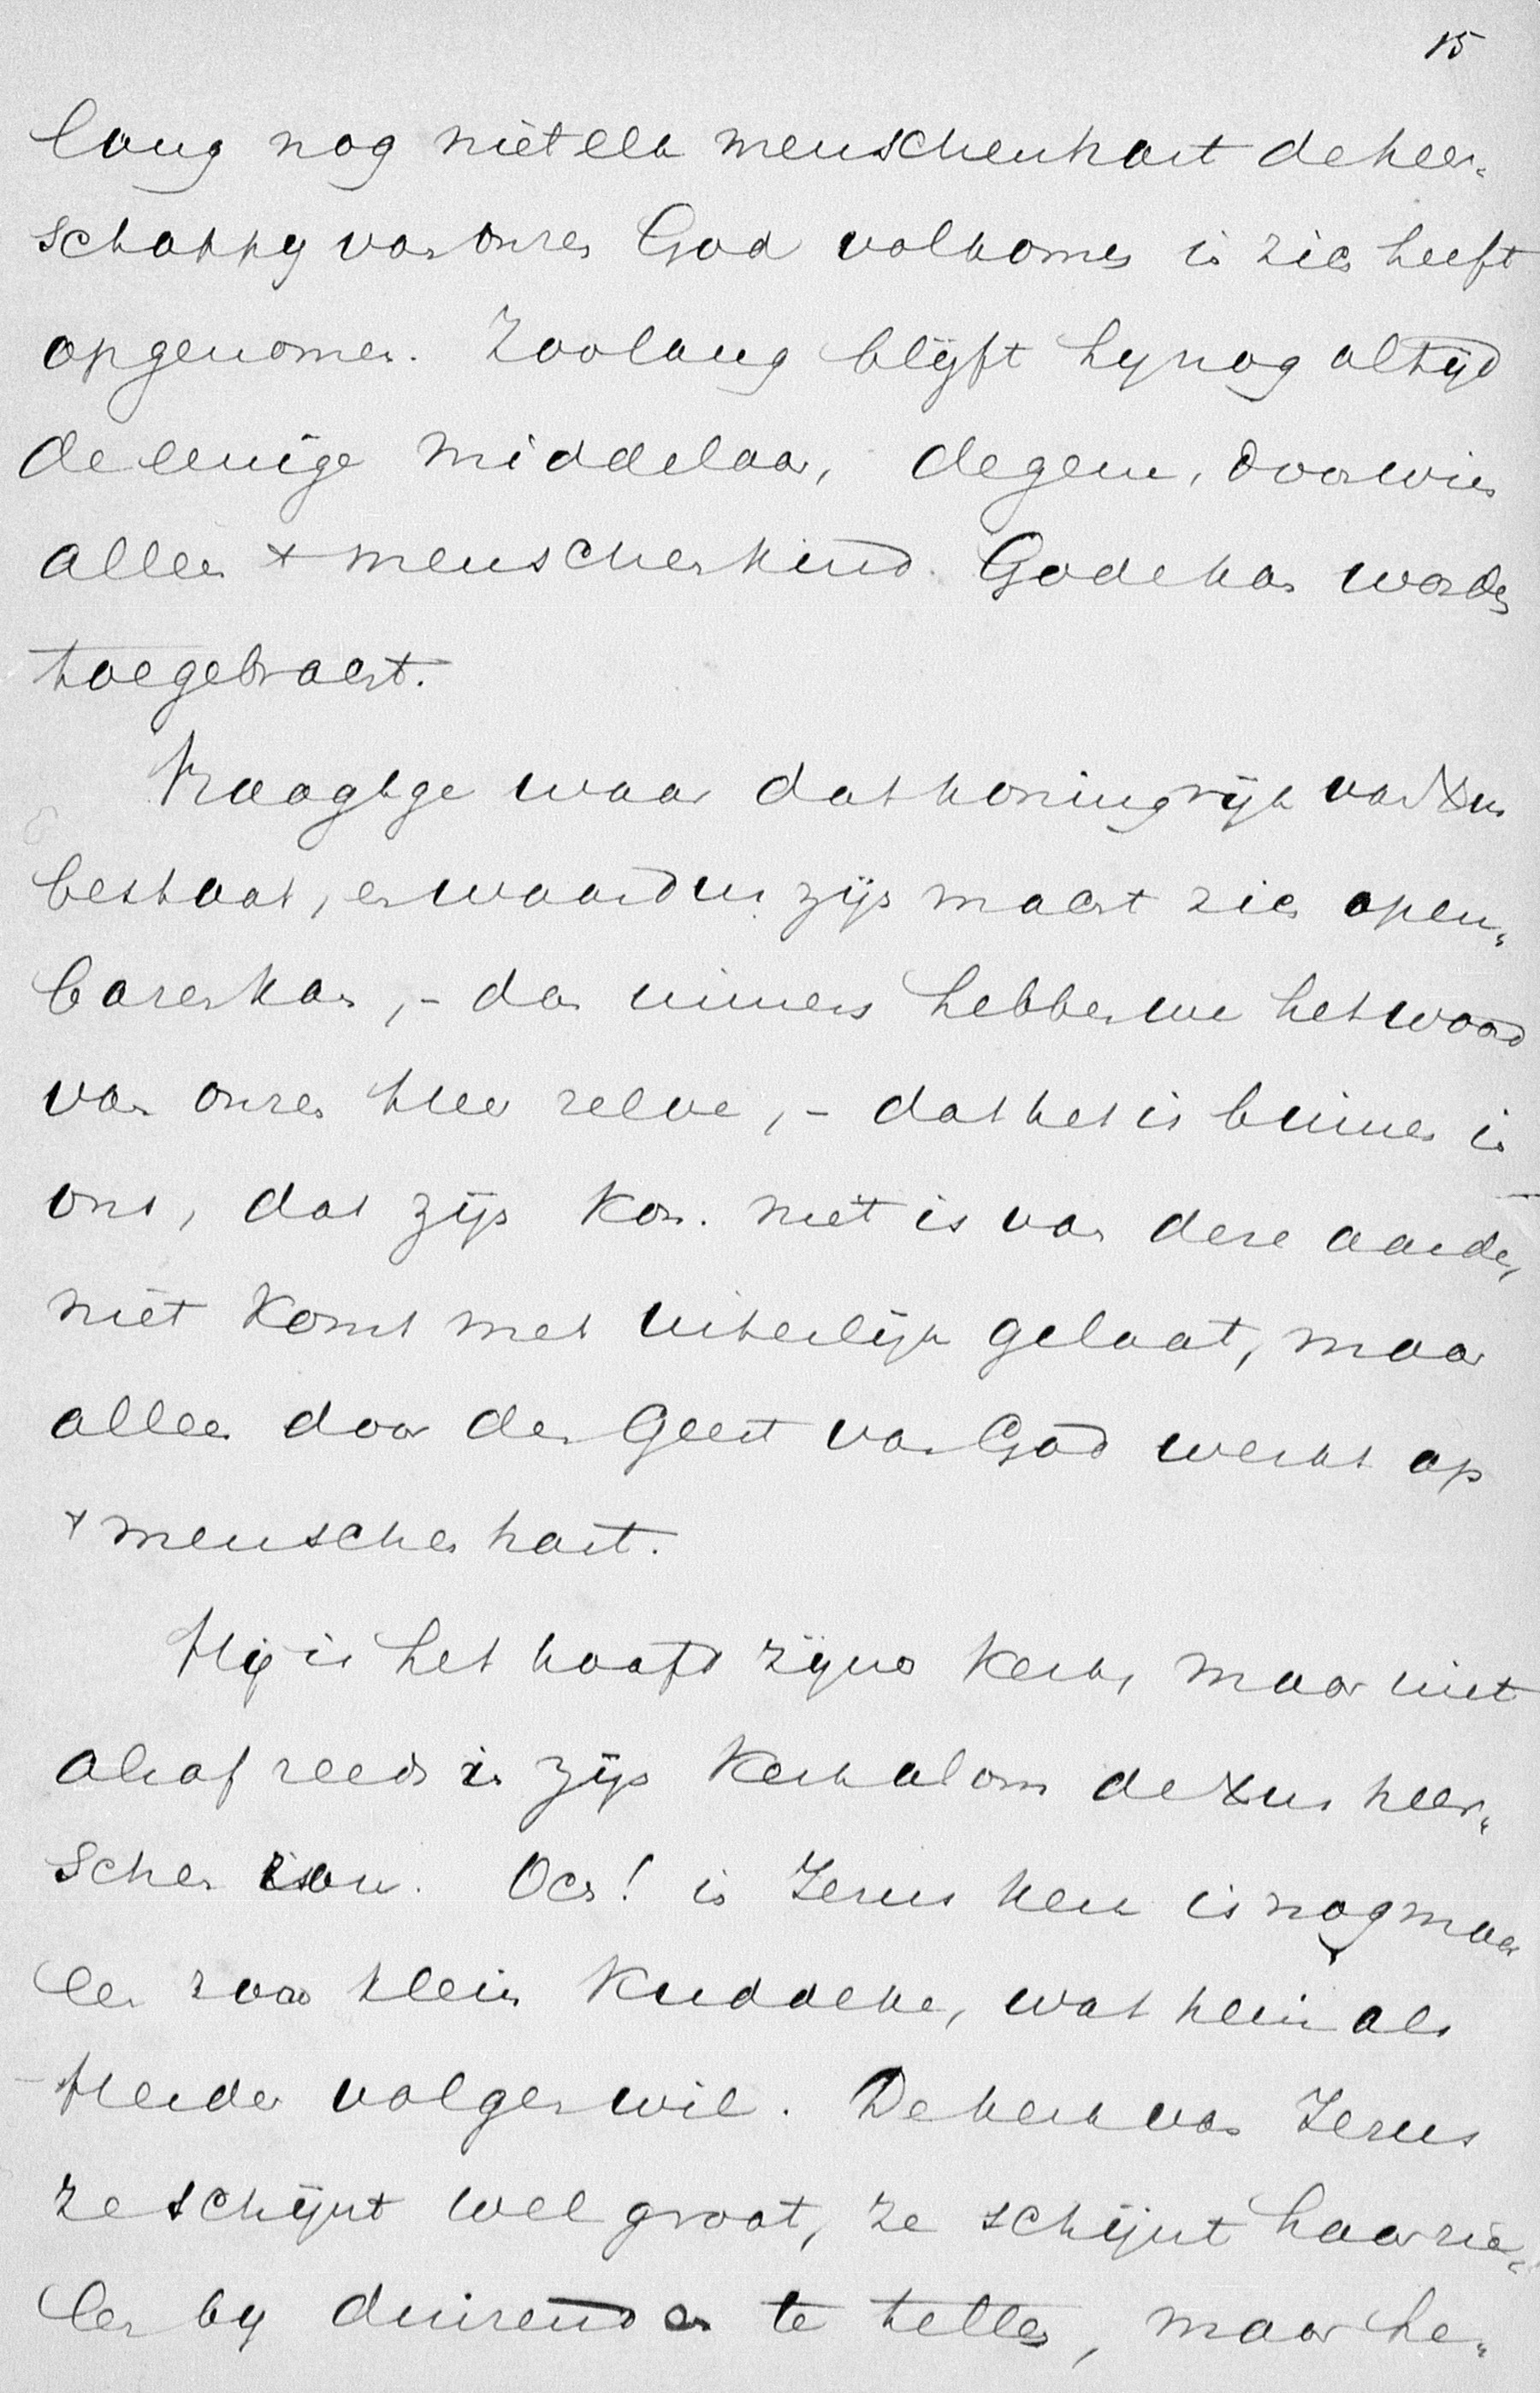 15
lang nog niet elk menschenhart de heer-
schappy van onzen God volkomen in zich heeft
opgenomen. Zoolang blijft hy nog altijd
de eenige middelaar, degene, door wien
alleen + menschenkind Gode kan worden
toegebracht.
Vraagt ge waar dat koningrijk van Xus
bestaat, en waardien zijn macht zich open-
baren kan, - dan immers hebben we het woord
van onzen Heer zelve, - dat het is binnen in
ons, dat zijn Kon. niet is van deze aarde,
niet komt met uiterlijk gelaat, maar
alleen door den Geest van God werkt op
+ menschenhart.
Hij is het hoofd zijner Kerk, maar niet
alsof reeds in zijn Kerk alom de Xus heer-
schen zou. Och! in Jezus kerk is nog maar
een zoo klein kuddeke, wat hem als
Herder volgen wil. De kerk van Jezus
ze schijnt wel groot, ze schijnt haar zie-
len by duizenden te tellen, maar he-